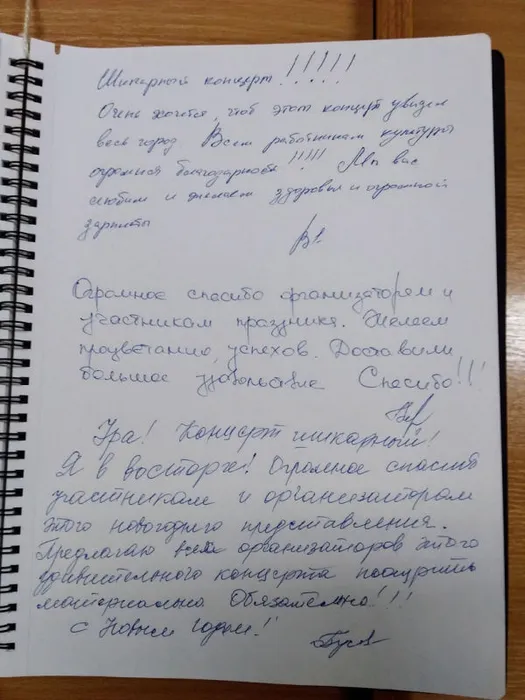 Шикарный концерт!!!!!
Очень хочется, чтоб этот концерт увидел
весь город Всем работникам культуры
огромная благодарность!!!!! Мы вас
любим и желаем здоровья и огромной
зарплаты
Огромное спасибо организаторам и
участникам праздника. Желаем
процветанию, успехов. Доставили
большое удовольствие Спасибо!!!
Ура! Концерт шикарный!
Я в восторге! Огромное спасибо
участникам и организаторам
этого новогоднего представления.
Предлагаю всех организаторов этого
удивительного концерта поощрить
материально Обязательно!!!
С Новым Годом!!